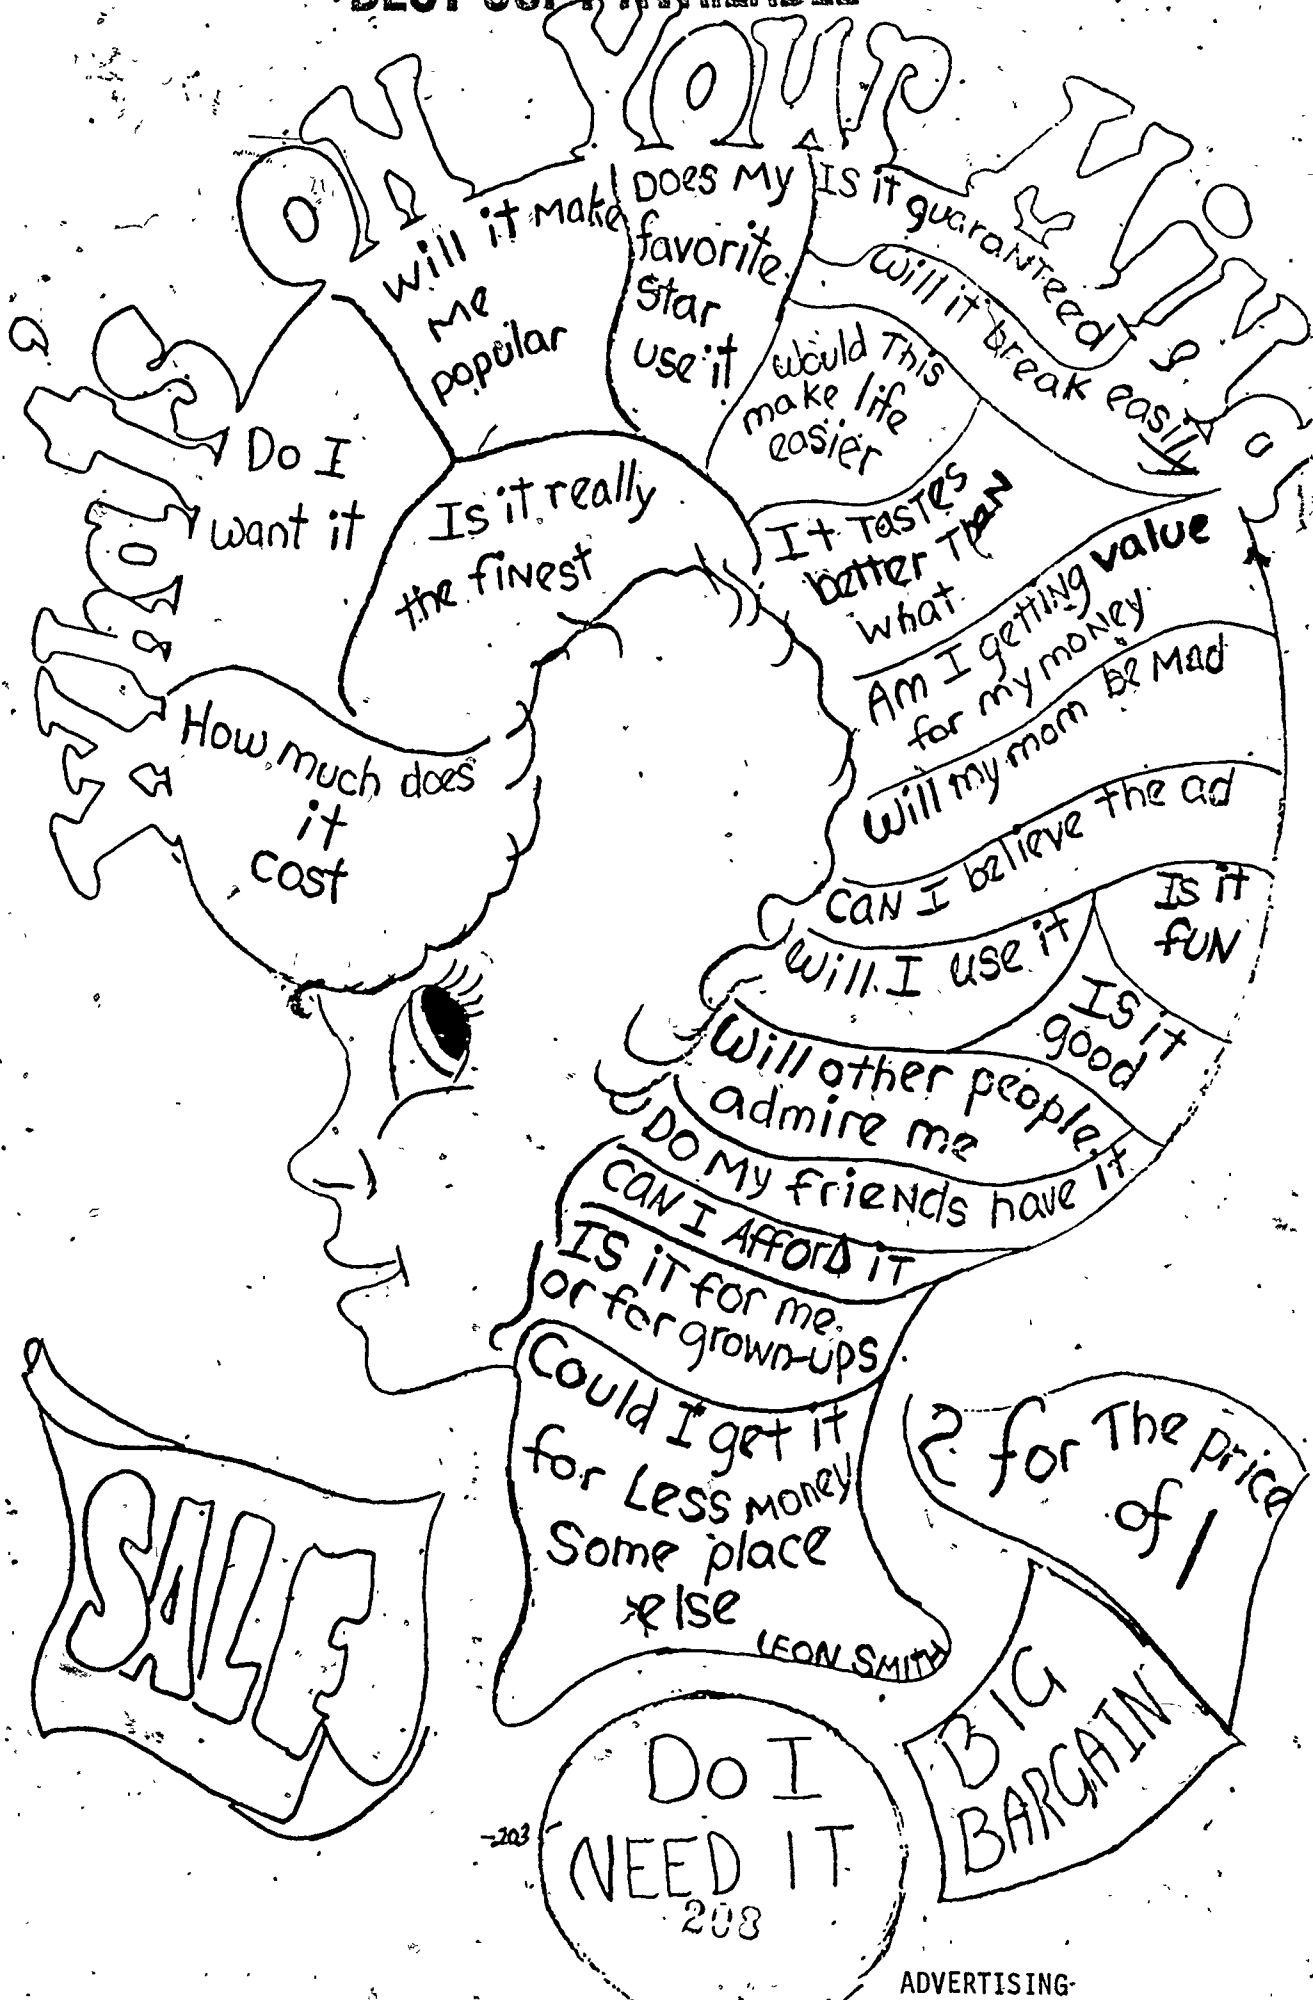 BEST COPY AVAILABLE
What's
ON Your Mind?
Will it make
me
popular
Does My
favorite
Star
use it
Is it guaranteed
Will it break easily
Would This
make life
easier
Do I
want it
Is it really
the finest
It Tastes
better Than
what
Am I getting value
for my money
Will my mom be Mad
How much does
it
cost
Can I believe the ad
Will I use it
Is it
fun
Is it
good
Will other people
admire me
Do My friends have it
Can I Afford it
Is it for me
or for grown-ups
Could I get it
for Less money
Some place
else
LEON SMITH
SALE
2 for The price
of 1
BIG
BARGAIN
Do I
NEED IT
-203
208
ADVERTISING